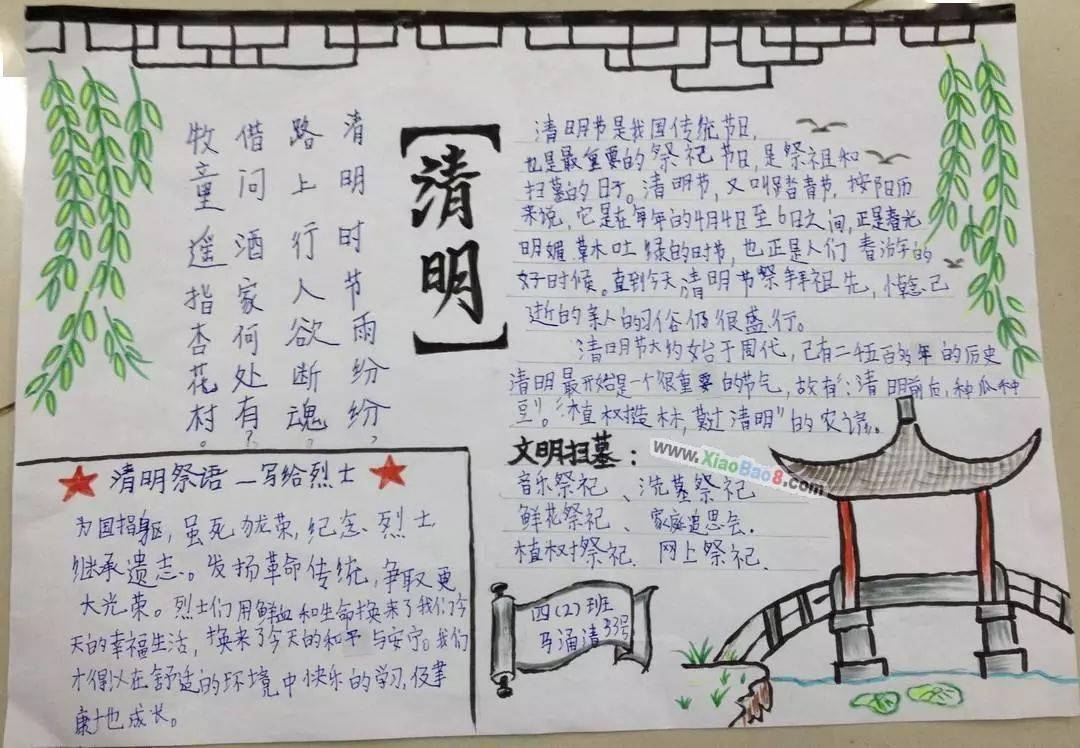 清明时节雨纷纷，
路上行人欲断魂。
借问酒家何处有？
牧童遥指杏花村。
【清明】
清明节是我国传统节日，
也是最重要的祭祀节日，是祭祖和
扫墓的日子。清明节，又叫踏青节，按阳历
来说，它是在每年的4月4日至6日之间，正是春光
明媚草木吐绿的时节，也正是人们春游的
好时候。直到今天清明节祭拜祖先，悼念已
逝的亲人的习俗仍很盛行。
清明节大约始于周代，已有二千五百多年的历史
清明最开始是一个很重要的节气，故有："清明前后，种瓜种
豆"。"植树造林，莫过清明"的农谚。
文明扫墓：
音乐祭祀、洗墓祭祀
鲜花祭祀、家庭追思会.
植树祭祀、网上祭祀.
www.XiaoBao8.com
清明祭语—写给烈士
为国捐躯，虽死犹荣，纪念、烈士
继承遗志。发扬革命传统，争取更
大光荣。烈士们用鲜血和生命换来了我们今
天的幸福生活，换来了今天的和平与安宁。我们
才得以在舒适的环境中快乐的学习，健
康地成长。
四(2)班
马涌清33号